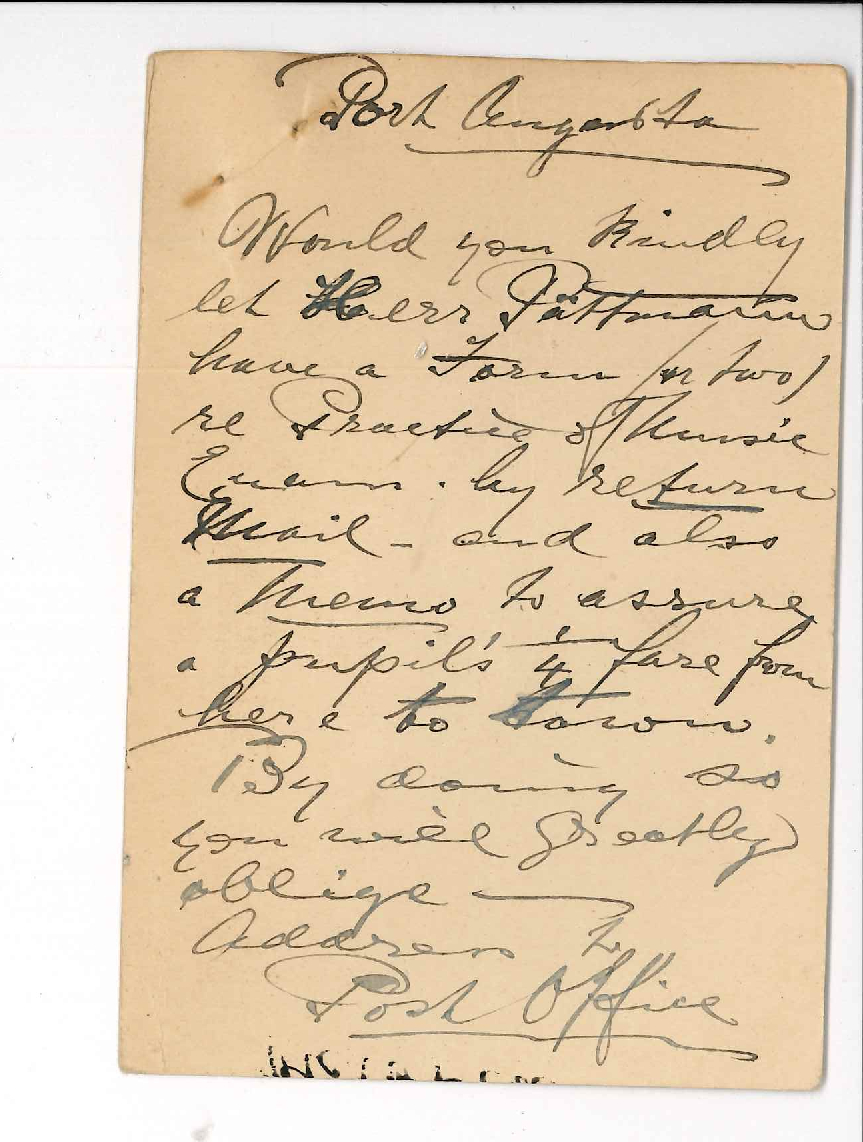 Port Augusta
Would you kindly
let Herr Püttmann
have a Form (or two)
re Practice of Music
Exam. by return
Mail - and also
a Memo to assure
a pupil's ¼ fare from
here to town.
By doing so
you will greatly
oblige —
Address to
Post Office